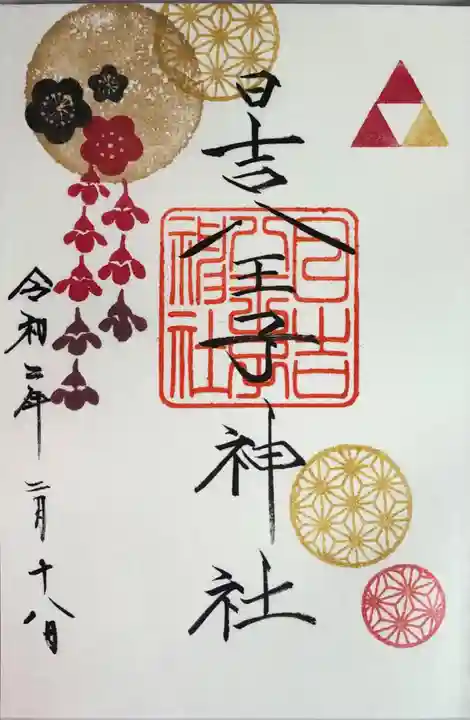 日吉八王子神社
日吉八王子神社
令和二年 二月十八日